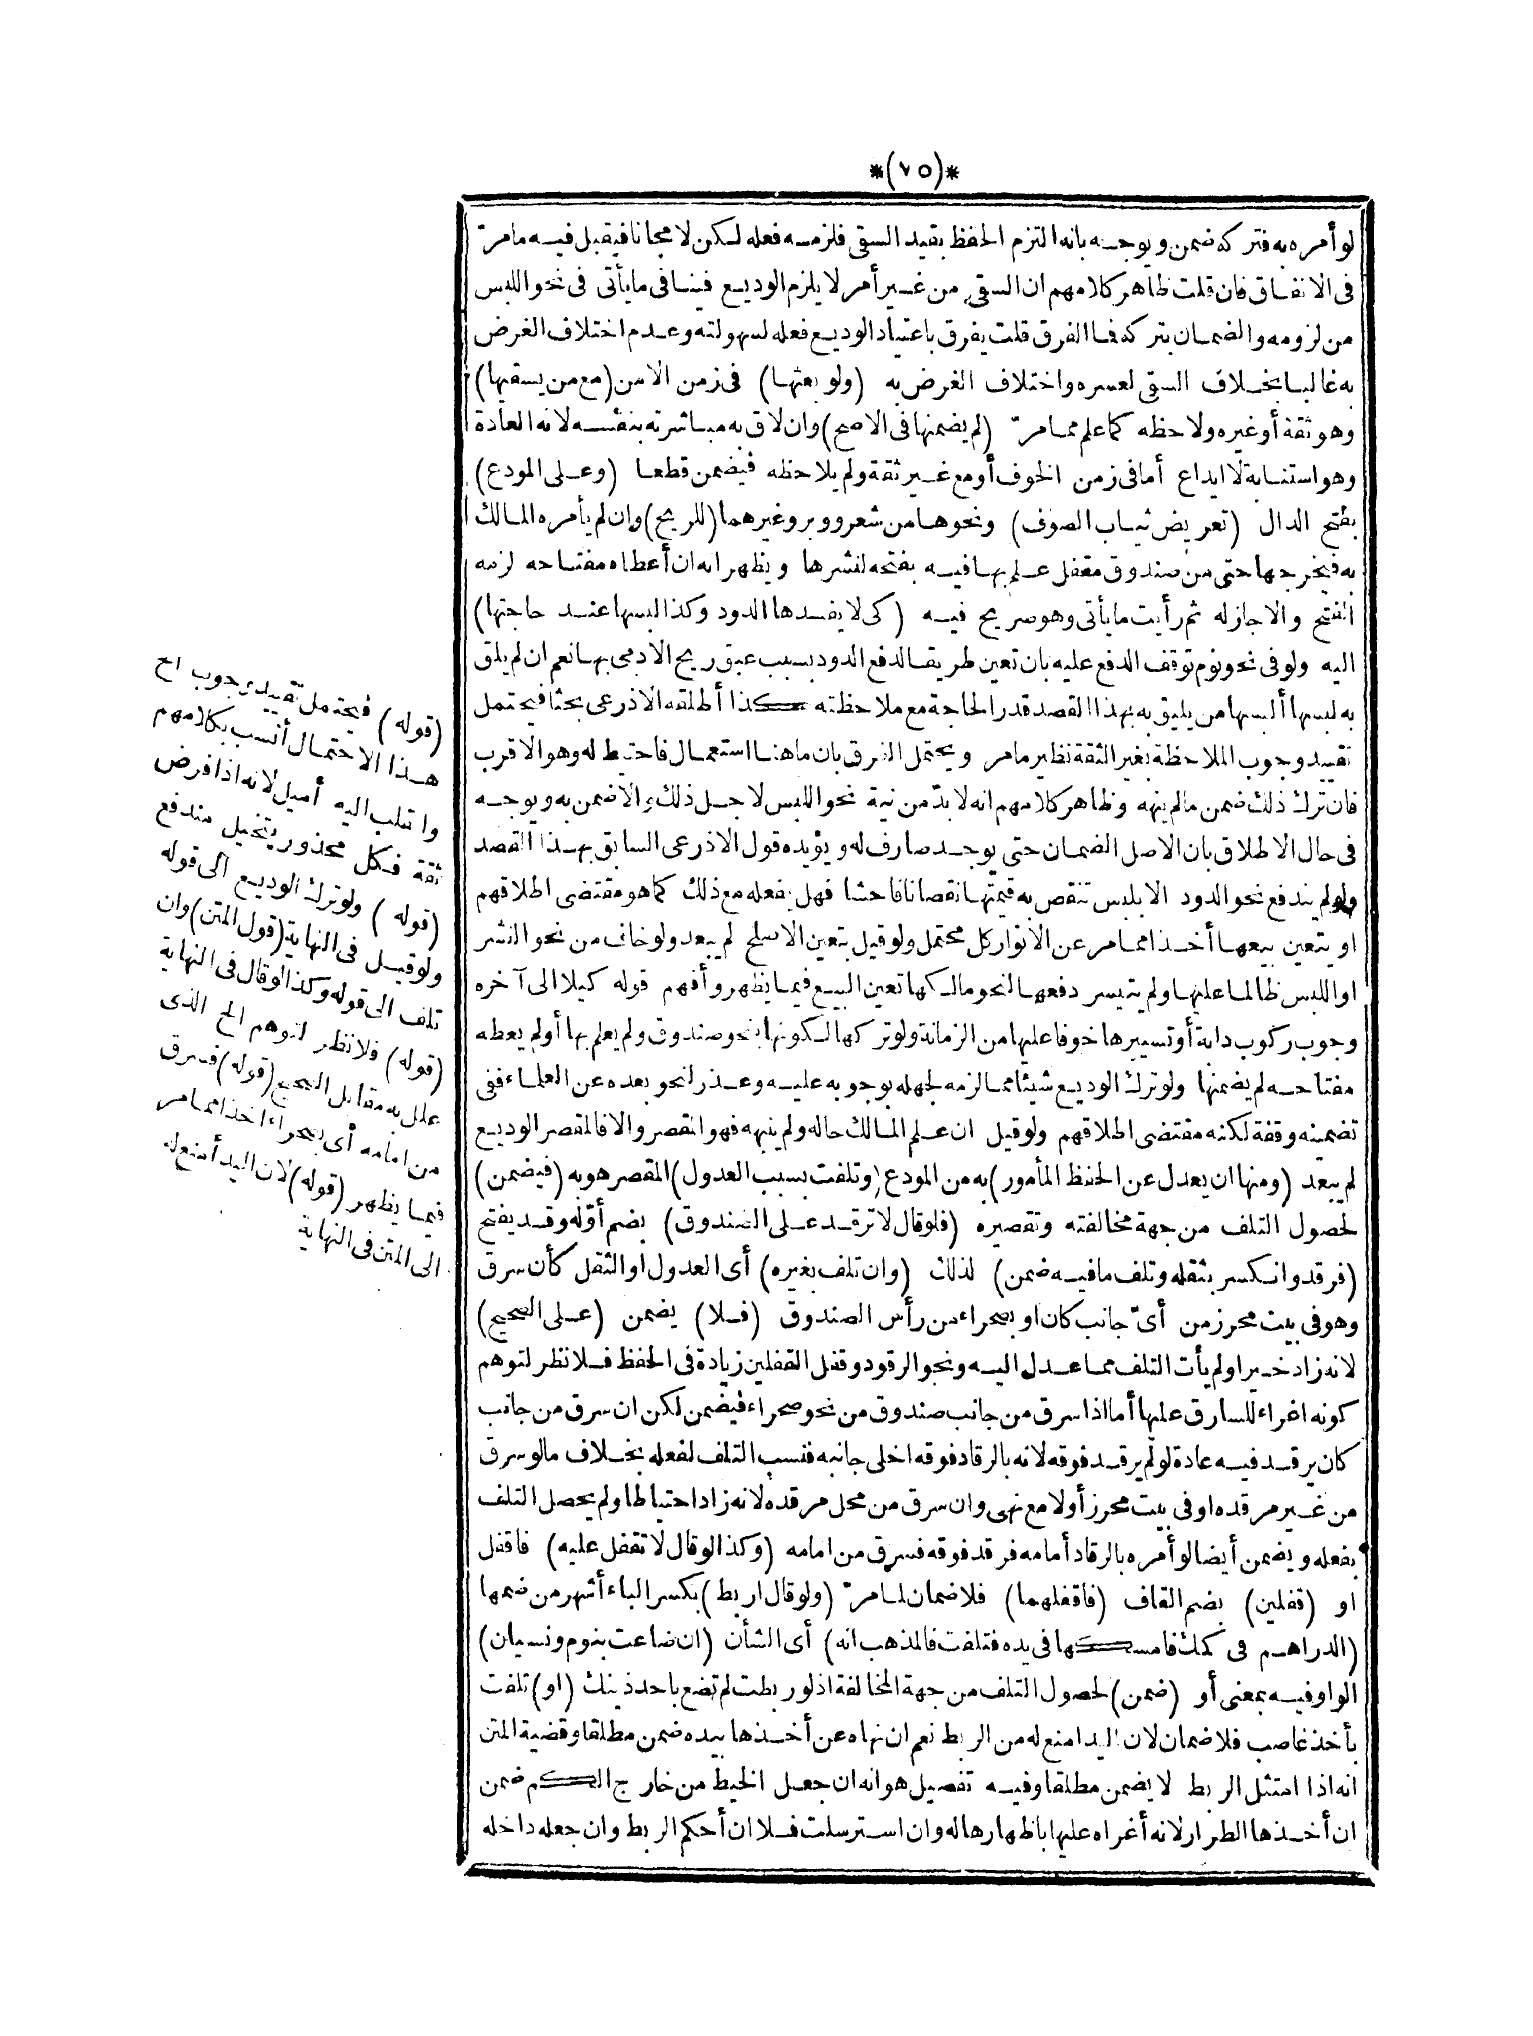 *(٧٥)*
لو أمره به فتركه ضمن ويوجه بانه التزم الحفظ بقيد السقى فلزمه فعله لكن لا مجانا فيقبل فيه مامرّ
فى الانفاق فان قلت ظاهر كلامهم ان السقى من غير أمر لا يلزم الوديع فينا فى ما يأتى فى نحو اللبس
من لزومه والضمان بتركه فما الفرق قلت يفرق باعتياد الوديع فعله لسهولته وعدم اختلاف الغرض
به غالبا بخلاف السقى لعسره واختلاف الغرض به (ولو بعثها) فى زمن الامن (مع من يسقيها)
وهو ثقة أو غيره ولاحظه كما علم ممامرّ (لم يضمنها فى الاصح) وان لاق به مباشرته بنفسه لانه العادة
وهو استنابة لا ايداع أما فى زمن الخوف أو مع غير ثقة ولم يلاحظه فيضمن قطعا (وعلى المودع)
بفتح الدال (تعريض ثياب الصوف) ونحوها من شعر ووبر وغيرهما (للريح) وان لم يأمره المالك
به فيخرجها حتى من صندوق مقفل علم بها فيه بفتحه لنشرها ويظهر انه ان أعطاه مفتاحه لزمه
الفتح والا جاز له ثم رأيت ما يأتى وهو صريح فيه (كى لا يفسدها الدود وكذا لبسها عند حاجتها)
اليه ولو فى نحو نوم توقف الدفع عليه بان تعين طريقا لدفع الدود بسبب عبق ريح الآدمى بها نعم ان لم يلق
به لبسها ألبسها من يليق به بهذا القصد قدر الحاجة مع ملاحظته كذا أطلقه الاذرعى بحثا فيحتمل
تقييد وجوب الملاحظة بغير الثقة نظير مامر ويحتمل الفرق بان ما هنا استعمال فاحتيط له وهو الاقرب
فان ترك ذلك ضمن مالم ينهه وظاهر كلامهم انه لا بدّ من نية نحو اللبس لاجل ذلك والا ضمن به ويوجه
فى حال الاطلاق بان الاصل الضمان حتى يوجد صارف له ويؤيده قول الاذرعى السابق بهذا القصد
ولو لم يندفع نحو الدود الا بلبس تنقص به قيمتها نقصانا فاحشا فهل يفعله مع ذلك كما هو مقتضى اطلاقهم
او يتعين بيعها أخذا ممامر عن الانوار كل محتمل ولو قيل يتعين الاصلح لم يبعد ولو خاف من نحو النشر
او اللبس ظالما عليها ولم يتيسر دفعها لنحو مالكها تعين البيع فيما يظهر وأفهم قوله كيلا الى آخره
وجوب ركوب دابة أو تسييرها خوفا عليها من الزمانة ولو تركها لكونها بنحو صندوق ولم يعلم بها أو لم يعطه
مفتاحه لم يضمنها ولو ترك الوديع شيئا مما لزمه لجهله بوجوبه عليه وعذر لنحو بعده عن العلماء ففى
تضمينه وقفة لكنه مقتضى اطلاقهم ولو قيل ان علم المالك حاله ولم ينبهه فهو المقصر والا فالمقصر الوديع
لم يبعد (ومنها ان يعدل عن الحفظ المأمور) به من المودع (وتلفت بسبب العدول) المقصر هو به (فيضمن)
لحصول التلف من جهة مخالفته وتقصيره (فلو قال لا ترقد على الصندوق) بضم أوّله وقد يفتح
(فرقد وانكسر بثقله وتلف ما فيه ضمن) لذلك (وان تلف بغيره) أى العدول او الثقل كأن سرق
وهو فى بيت محرز من أىّ جانب كان او بصحراء من رأس الصندوق (فلا) يضمن (على الصحيح)
لانه زاد خيرا ولم يأت التلف مما عدل اليه ونحو الرقود وقفل القفلين زيادة فى الحفظ فلا نظر لتوهم
كونه اغراء للسارق عليها أما اذا سرق من جانب صندوق من نحو صحراء فيضمن لكن ان سرق من جانب
كان يرقد فيه عادة لو لم يرقد فوقه لانه بالرقاد فوقه اخلى جانبه فنسب التلف لفعله بخلاف مالو سرق
من غير مرقده او فى بيت محرز أولا مع نهى وان سرق من محل مرقده لانه زاد احتياطا ولم يحصل التلف
بفعله ويضمن أيضا لو أمره بالرقاد أمامه فرقد فوقه فسرق من امامه (وكذا لو قال لا تقفل عليه) فاقفل
او (قفلين) بضم القاف (فاقفلهما) فلا ضمان لمامرّ (ولو قال اربط) بكسر الباء أشهر من ضمها
(الدراهم فى كمك فامسكها فى يده فتلفت فالمذهب انه) أى الشأن (ان ضاعت بنوم ونسيان)
الواو فيه بمعنى أو (ضمن) لحصول التلف من جهة المخالفة اذ لو ربطت لم تضع باحد ذينك (او) تلفت
بأخذ غاصب فلا ضمان لان اليد امنع له من الربط نعم ان نهاه عن أخذها بيده ضمن مطلقا وقضية المتن
انه اذا امتثل الربط لا يضمن مطلقا وفيه تفصيل هو انه ان جعل الخيط من خارج الكم ضمن
ان أخذها الطرار لانه أغراه عليها باظهارها له وان استرسلت فلا ان أحكم الربط وان جعله داخله
(قوله) فيحتمل تقييد وجوب الخ
هذا الاحتمال أنسب بكلامهم
والقلب اليه أميل لانه اذا فرض
ثقة فكل محذور يتخيل مندفع
(قوله) ولو ترك الوديع الى قوله
ولو قيل فى النهاية (قول المتن) وان
تلف الى قوله وكذا لو قال فى النهاية
(قوله) فلا نظر لتوهم الخ الذى
علل به مقابل الصحيح (قوله) فسرق
من امامه أى بصحراء اخذا ممامر
فيما يظهر (قوله) لان اليد أمنع له
الى المتن فى النهاية